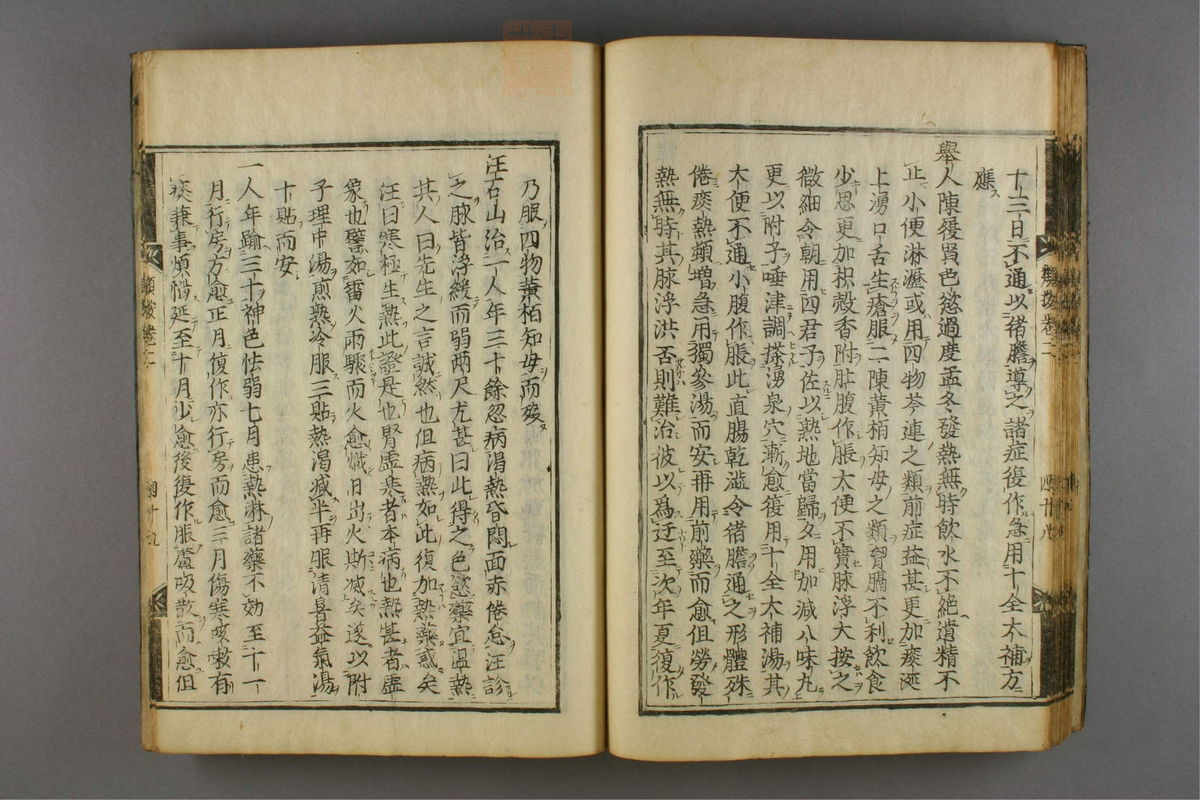 十三日不通以猪膽導之諸症復作急用十全大補方
應ス
舉人陳履賢色慾過度孟冬發熱無時飲水不絕遺精不
止小便淋瀝或用四物芩連之類前症益甚更加痰涎
上湧口舌生瘡服二陳黃栢知母之類胷膈不利飲食
少思更加枳殼香附肚腹作脹大便不實脉浮大按之
微細令朝用四君子佐以熟地當歸夕用加減八味丸
更以附子唾津調搽湧泉穴漸愈復用十全大補湯其
大便不通小腹作脹此直腸乾澁令猪膽通之形體殊
倦痰熱頓增急用獨參湯而安再用前藥而愈但勞發
熱無時其脉浮洪否則難治彼以爲迂至次年夏復作
類按卷二
四十八
乃服四物黃栢知母而歿
汪石山治一人年三十餘忽病渴熱昏悶面赤倦怠汪診
之脉皆浮緩而弱兩尺尤甚曰此得之色慾藥宜溫熱
其人曰先生之言誠然也但病熱如此復加熱藥惑矣
汪曰寒極生熱此證是也腎虛寒者本病也熱甚者虛
象也譬如雷火雨驟而火愈熾日出火斯滅矣遂以附
子理中湯煎熟冷服三貼熱渴減半再服清暑益氣湯
十貼而安
一人年踰三十神色怯弱七月患熱淋諸藥不効至十一
月行房方愈正月復作亦行房而愈三月傷寒咳嗽有
痰兼事煩惱延至十月少愈後復作脹蘆吸散而愈但
類按卷二
四十九